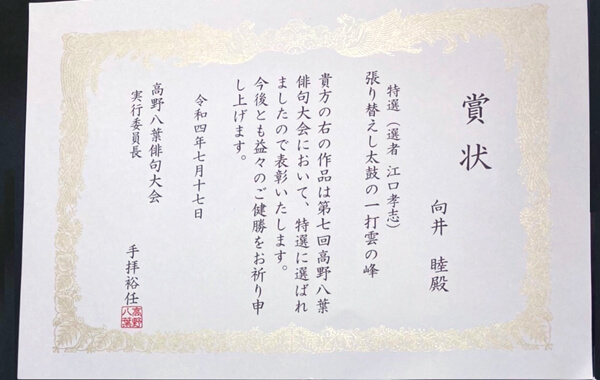 賞状
向井 睦殿
特選（選者 江口孝志）
張り替えし太鼓の一打雲の峰
貴方の右の作品は第七回高野八葉
俳句大会において、特選に選ばれ
ましたので表彰いたします。
今後とも益々のご健勝をお祈り申
し上げます。
令和四年七月十七日
高野八葉俳句大会
実行委員長
手拝裕任
高野
八葉